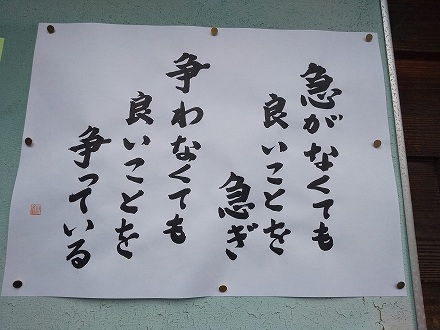 急がなくても
良いことを
急ぎ
争わなくても
良いことを
争っている